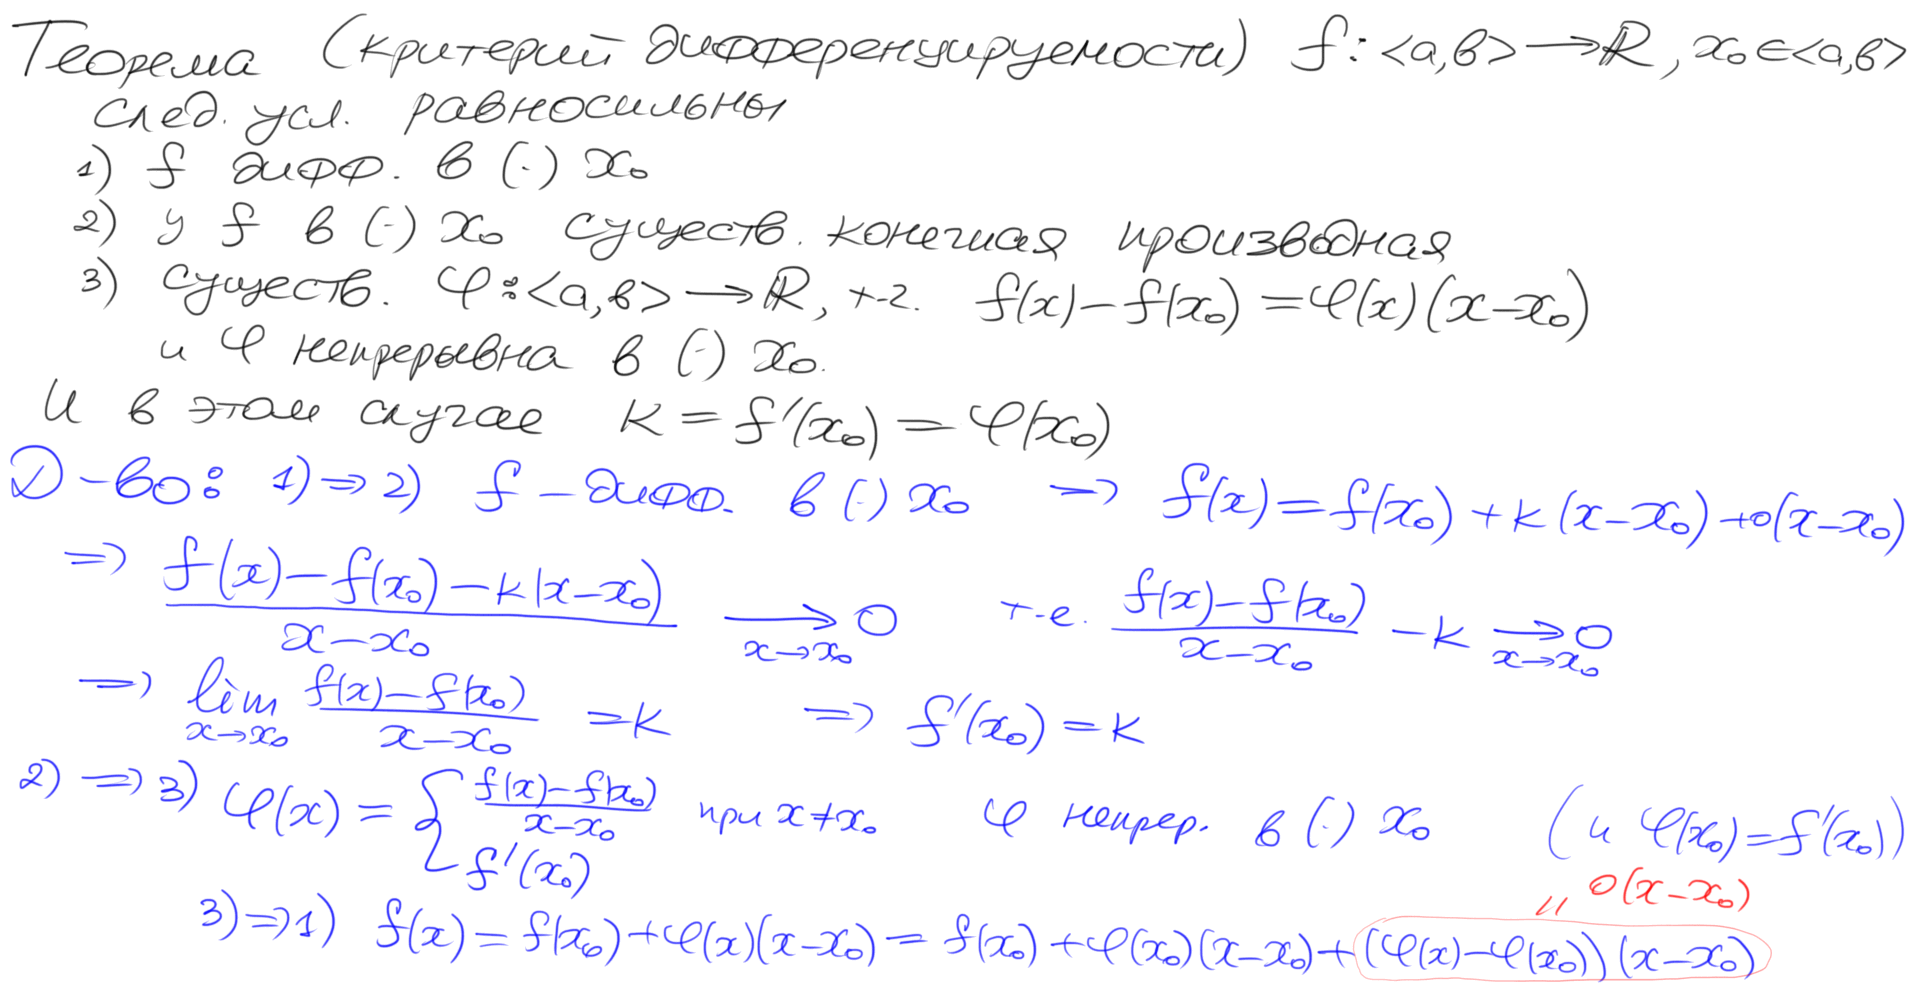 Теорема (критерий дифференцируемости) f: <a,b> → ℝ, x₀ ∈ <a,b>
след. усл. равносильны
1) f дифф. в (·) x₀
2) у f в (·) x₀ существ. конечная производная
3) существ. φ: <a,b> → ℝ, т.ч. f(x) − f(x₀) = φ(x)(x−x₀)
и φ непрерывна в (·) x₀.
И в этом случае k = f'(x₀) = φ(x₀)
Д-во: 1) ⇒ 2) f − дифф. в (·) x₀ ⇒ f(x) = f(x₀) + k(x−x₀) + o(x−x₀)
⇒ (f(x) − f(x₀) − k(x−x₀))/(x−x₀) → 0 (x→x₀) т.е. (f(x) − f(x₀))/(x−x₀) − k → 0 (x→x₀)
⇒ lim x→x₀ (f(x) − f(x₀))/(x−x₀) = k ⇒ f'(x₀) = k
2) ⇒ 3) φ(x) = { (f(x) − f(x₀))/(x−x₀) при x ≠ x₀ φ непрер. в (·) x₀ (и φ(x₀) = f'(x₀))
f'(x₀)
" o(x−x₀)
3) ⇒ 1) f(x) = f(x₀) + φ(x)(x−x₀) = f(x₀) + φ(x₀)(x−x₀) + (φ(x) − φ(x₀))(x−x₀)